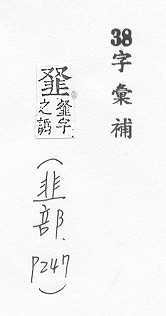 38字彙補
字
之譌
(韭部. P247)